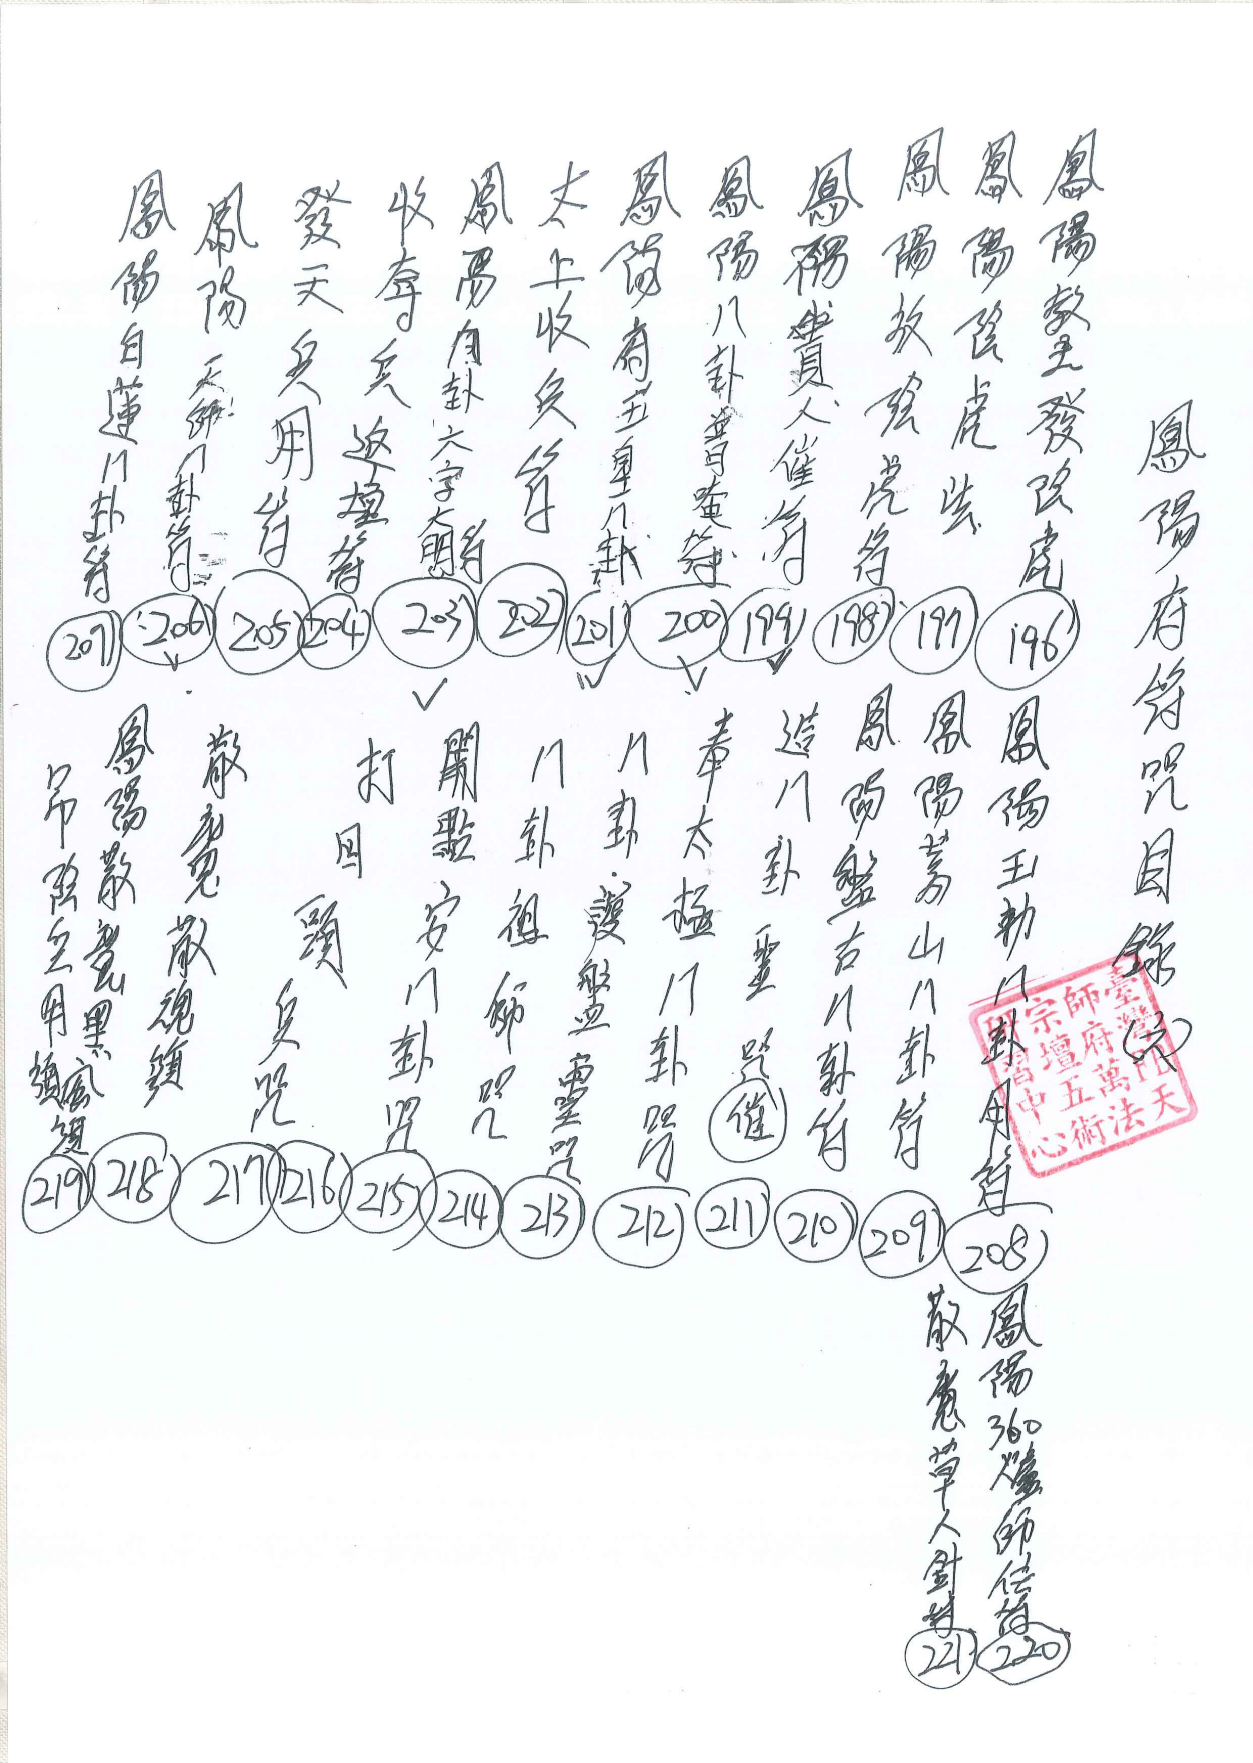 鳳陽府符咒目錄
鳳陽教主發陰虎 196
鳳陽陰虎法 197
鳳陽放陰虎符 198
鳳陽貴人催符 199
鳳陽八卦普唵符 200
鳳陽府五皇八卦 201
太上收兵符 202
鳳陽八卦六字大明符 203
收奪兵返壇符 204
發天兵用符 205
鳳陽天師八卦符 206
鳳陽白蓮八卦符 207
鳳陽玉勅八卦用符 208
鳳陽茗山八卦符 209
鳳陽盤古八卦符 210
造八卦聖咒 催 211
奉太極八卦咒 212
八卦護盤靈咒 213
八卦祖師咒 214
開點安八卦咒 215
打回頭兵咒 216
散魂 217
鳳陽散魂黑風 218
吊陰兵用 219
鳳陽360 師傳符 220
散魂草人針 221
臺灣 天
師府萬法
宗壇五術
研習中心